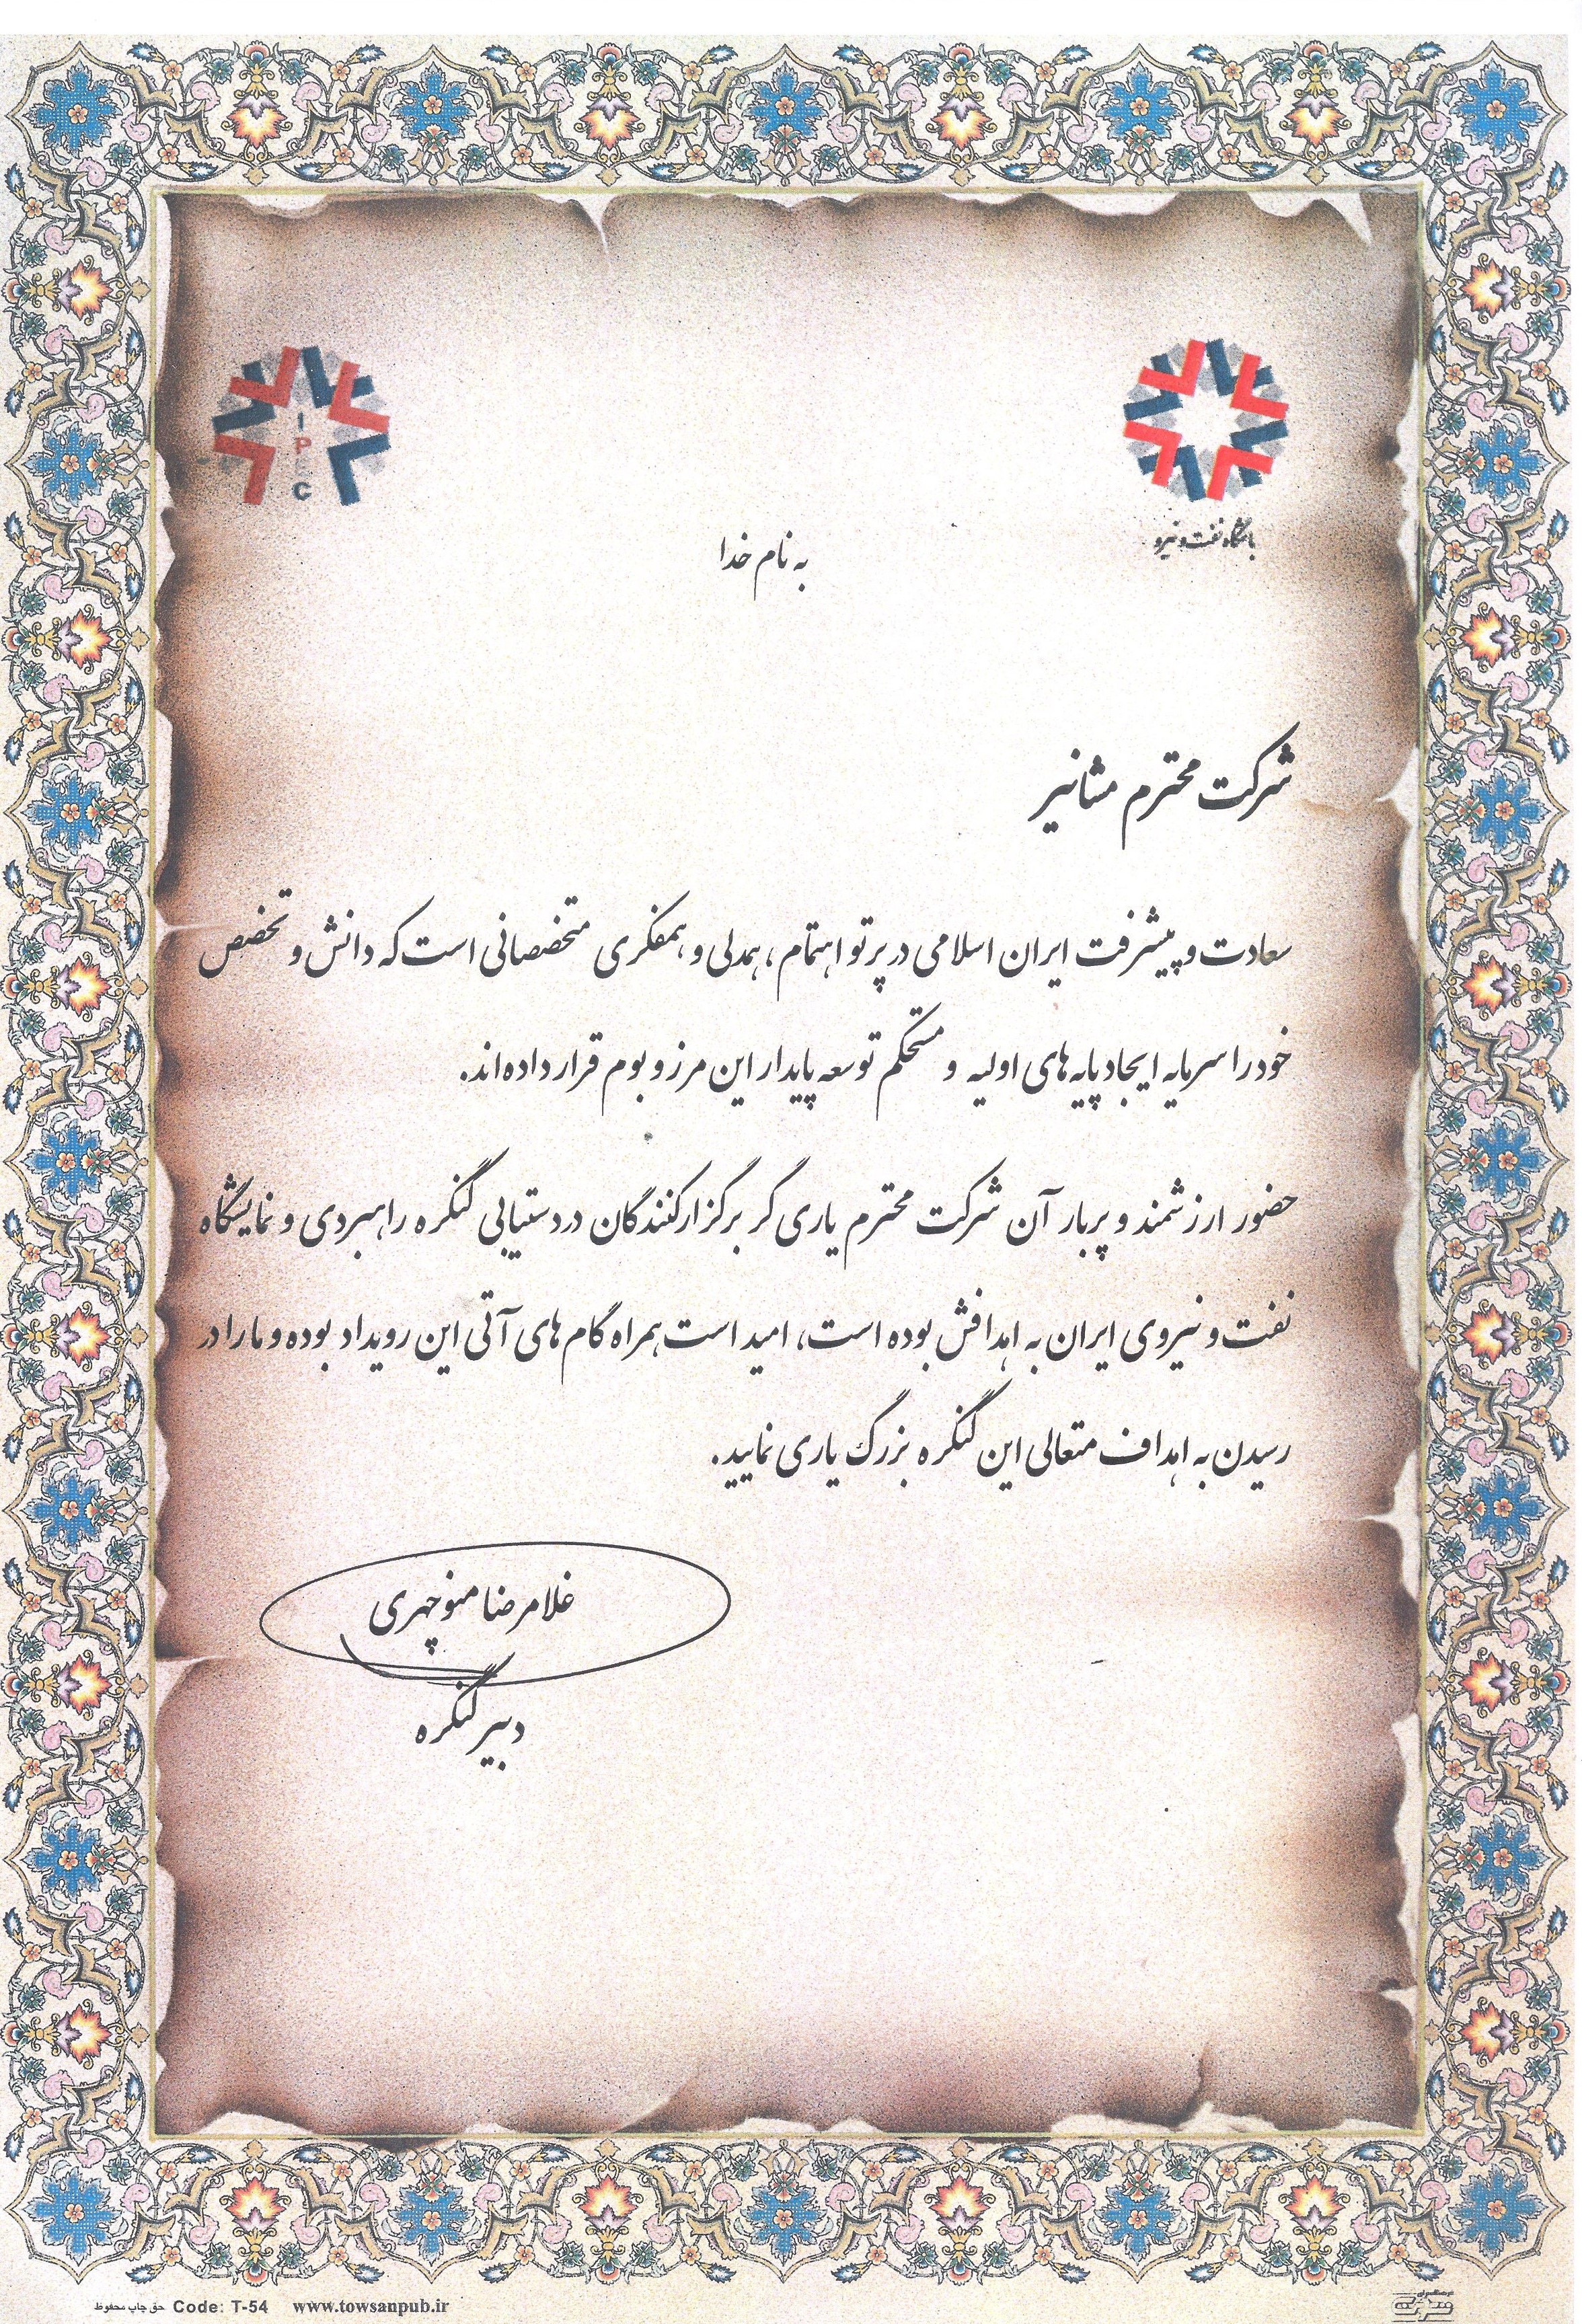 I
P
E
C
باشگاه نفت و نیرو
به نام خدا
شرکت محترم مشانیر
سعادت و پیشرفت ایران اسلامی در پرتو اهتمام، همدلی و همفکری متخصصانی است که دانش و تخصص
خود را سرمایه ایجاد پایه های اولیه و مستحکم توسعه پایدار این مرز و بوم قرار داده اند.
حضور ارزشمند و پربار آن شرکت محترم یاری گر برگزارکنندگان در دستیابی کنگره راهبردی و نمایشگاه
نفت و نیروی ایران به اهدافش بوده است، امید است همراه گام های آتی این رویداد بوده و ما را در
رسیدن به اهداف متعالی این کنگره بزرگ یاری نمایید.
غلامرضا منوچهری
دبیر کنگره
حق چاپ محفوظ Code: T-54 www.towsanpub.ir